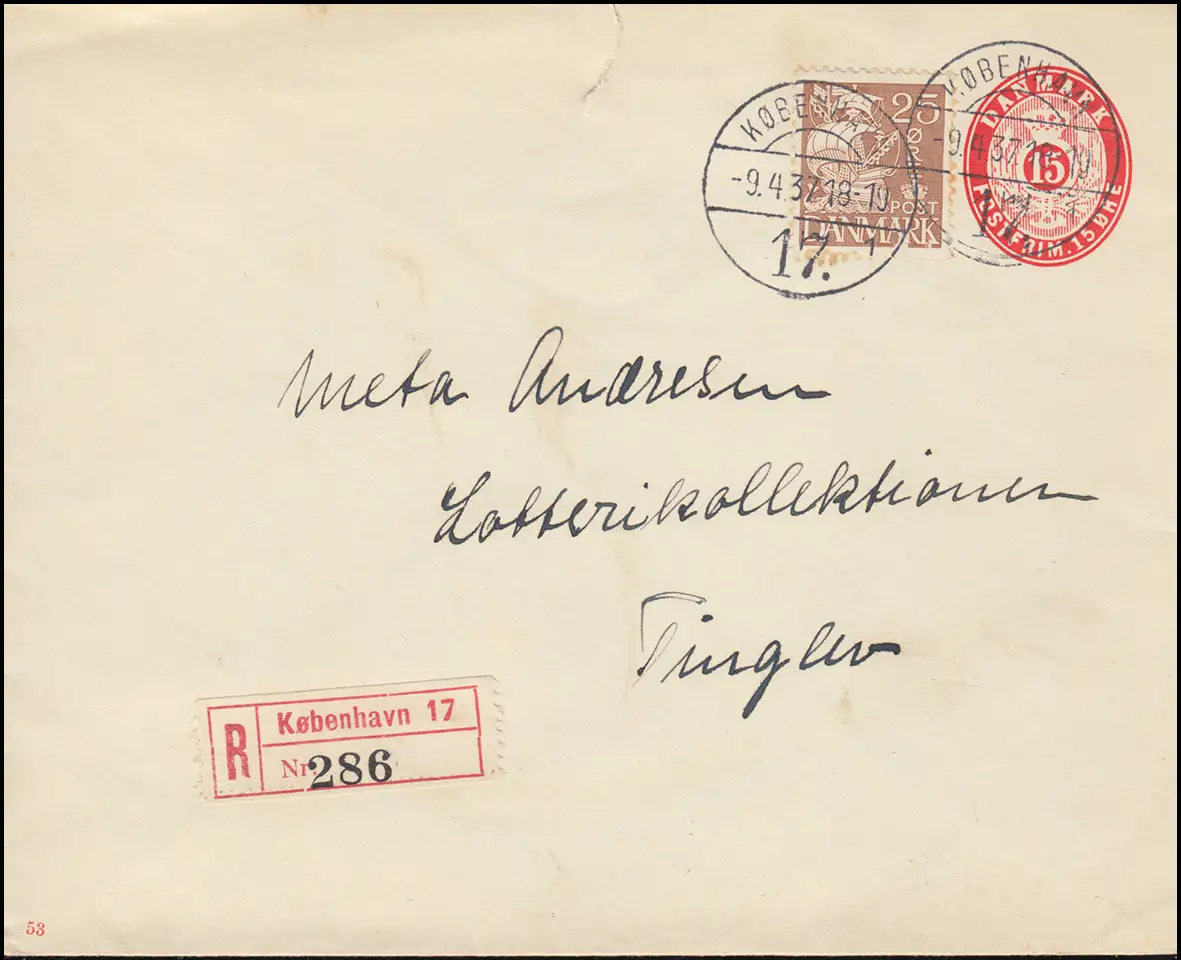 KØBENHAVN
-9.4.37.18-19
17.
1
25
ØRE
POST
DANMARK
KØBENHAVN
-9.4.37.18-19
DANMARK
15
POSTFRIM. 15 ØRE
Meta Andresen
Lotterikollektionen
Tinglev
R
København 17
Nr. 286
53